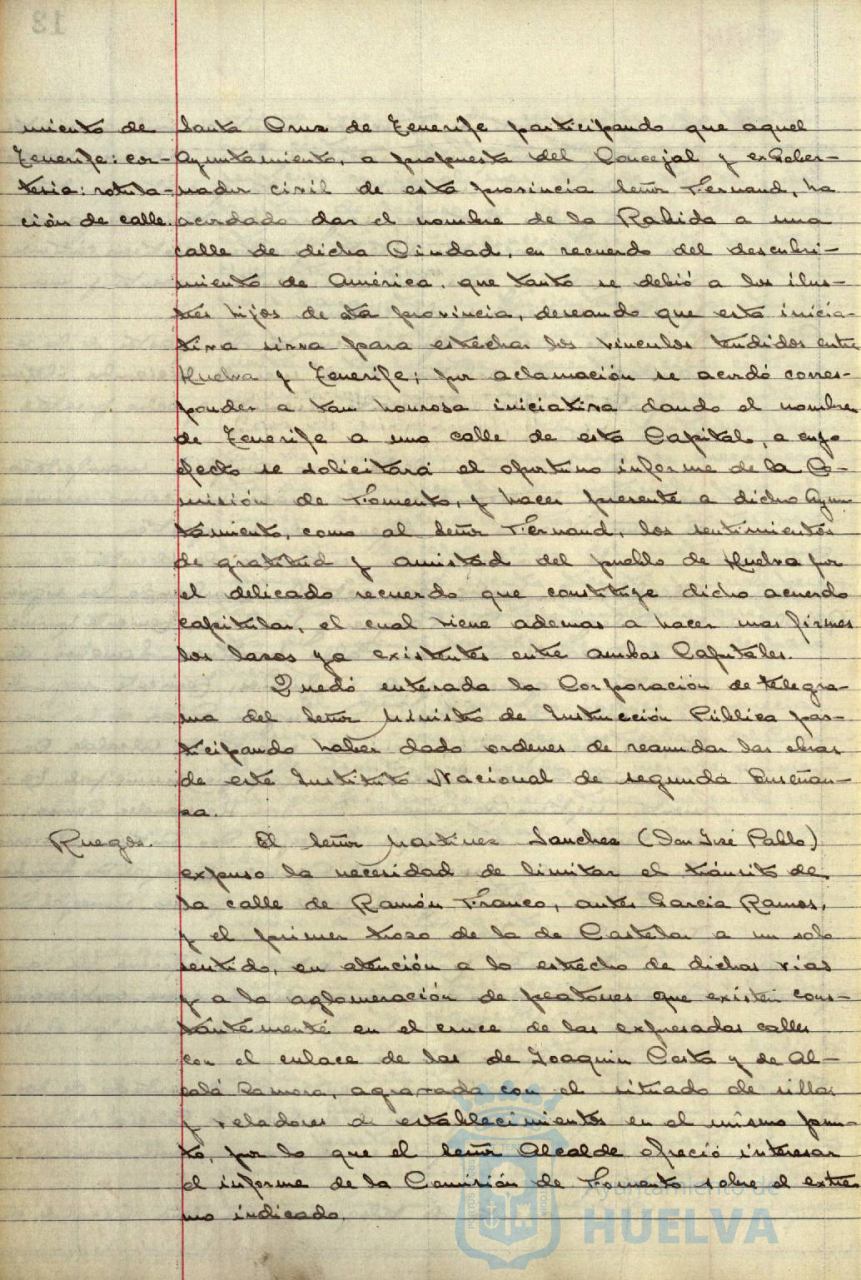 13
miento de
Tenerife: cor-
tesia: rotula-
ción de calle.
Santa Cruz de Tenerife participando que aquel
Ayuntamiento, a propuesta del Concejal y exGober-
nador civil de esta provincia Señor Fernand, ha
acordado dar el nombre de la Rabida a una
calle de dicha Ciudad, en recuerdo del descubri-
miento de América, que tanto se debió a los ilus-
tres hijos de esta provincia, deseando que esta inicia-
tiva sirva para estrechar los vinculos tendidos entre
Huelva y Tenerife; por aclamación se acordó corres-
ponder a tam honrosa iniciativa dando el nombre
de Tenerife a una calle de esta Capital, a cuyo
efecto se solicitará el oportuno informe de la Co-
misión de Fomento, y hacer presente a dicho Ayun-
tamiento, como al Señor Fernand, los sentimientos
de gratitud y amistad del pueblo de Huelva por
el delicado recuerdo que constituye dicho acuerdo
capitular, el cual viene ademas a hacer mas firmes
los lazos ya existentes entre ambas Capitales.
Quedó enterada la Corporación de telegra-
ma del Señor Ministro de Instrucción Pública par-
ticipando haber dado ordenes de reanudar las obras
de este Instituto Nacional de segunda Enseñan-
za.
Ruegos.
El Señor Martinez Sanchez (Don José Pablo)
expuso la necesidad de limitar el tránsito de
la calle de Ramón Franco, antes Garcia Ramos,
y el primer trozo de la de Castelar a un solo
sentido, en atención a lo estrecho de dichas vias
y a la aglomeración de peatones que existen cons-
tantemente en el cruce de las expresadas calles
con el enlace de las de Joaquin Costa y de Al-
calá Zamora, agravada con el situado de sillas
y veladores de establecimientos en el mismo pun-
to, por lo que el Señor Alcalde ofreció interesar
el informe de la Comisión de Fomento sobre el extre-
mo indicado.
Ayuntamiento de
HUELVA